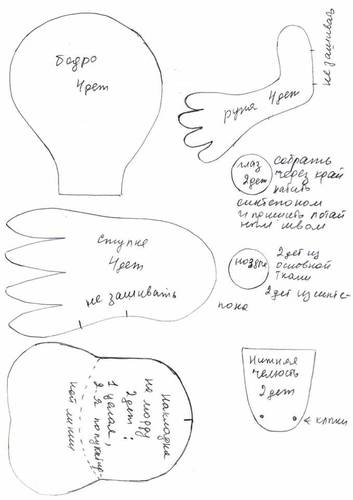 бедро
4 дет
рука 4 дет
не зашивать
глаз
2 дет
собрать
через край
набить
синтепоном
и пришить потай
ным швом
ступня
4 дет
не зашивать
ноздри
2 дет из
основной
ткани
2 дет из синте-
пона
Накладка
на морду
2 дет:
1 целая,
2-я по пунктир-
ной линии
Нижняя
челюсть
2 дет
клыки